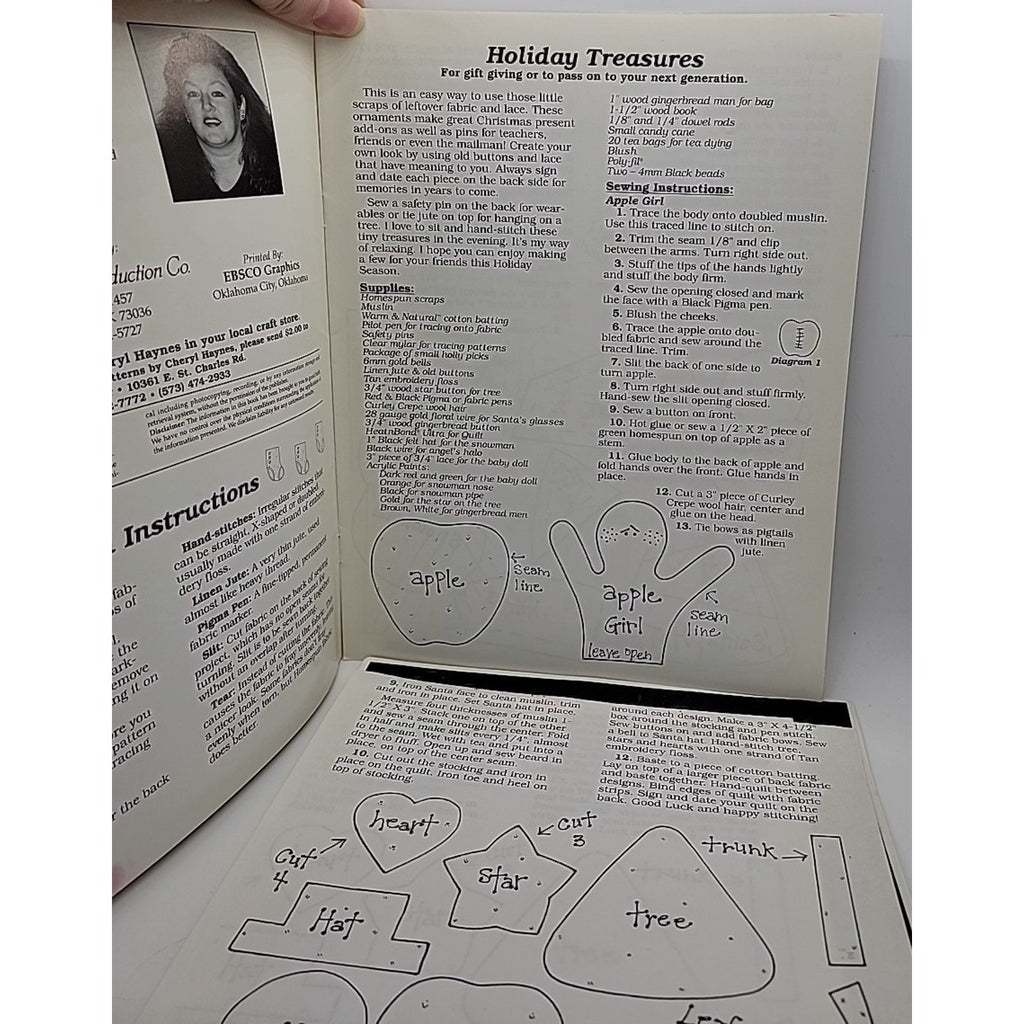 Holiday Treasures
For gift giving or to pass on to your next generation.
This is an easy way to use those little
scraps of leftover fabric and lace. These
ornaments make great Christmas present
add-ons as well as pins for teachers,
friends or even the mailman! Create your
own look by using old buttons and lace
that have meaning to you. Always sign
and date each piece on the back side for
memories in years to come.
Sew a safety pin on the back for wear-
ables or tie jute on top for hanging on a
tree. I love to sit and hand-stitch these
tiny treasures in the evening. It's my way
of relaxing. I hope you can enjoy making
a few for your friends this Holiday
Season.
Supplies:
Homespun scraps
Muslin
Warm & Natural™ cotton batting
Pilot pen for tracing onto fabric
Safety pins
Clear mylar for tracing patterns
Package of small holly picks
6mm gold bells
Linen Jute & old buttons
Tan embroidery floss
3/4" wood star button for tree
Red & Black Pigma or fabric pens
Curley Crepe wool hair
28 gauge gold floral wire for Santa's glasses
3/4" wood gingerbread button
HeatnBond® Ultra for Quilt
1" Black felt hat for the snowman
Black wire for angel's halo
3" piece of 3/4" lace for the baby doll
Acrylic Paints:
Dark red and green for the baby doll
Orange for snowman nose
Black for snowman pipe
Gold for the star on the tree
Brown, White for gingerbread men
1" wood gingerbread man for bag
1-1/2" wood book
1/8" and 1/4" dowel rods
Small candy cane
20 tea bags for tea dying
Blush
Poly-fil®
Two - 4mm Black beads
Sewing Instructions:
Apple Girl
1. Trace the body onto doubled muslin.
Use this traced line to stitch on.
2. Trim the seam 1/8" and clip
between the arms. Turn right side out.
3. Stuff the tips of the hands lightly
and stuff the body firm.
4. Sew the opening closed and mark
the face with a Black Pigma pen.
5. Blush the cheeks.
6. Trace the apple onto dou-
bled fabric and sew around the
traced line. Trim.
7. Slit the back of one side to
turn apple.
8. Turn right side out and stuff firmly.
Hand-sew the slit opening closed.
9. Sew a button on front.
10. Hot glue or sew a 1/2" X 2" piece of
green homespun on top of apple as a
stem.
11. Glue body to the back of apple and
fold hands over the front. Glue hands in
place.
12. Cut a 3" piece of Curley
Crepe wool hair, center and
glue on the head.
13. Tie bows as pigtails
with linen
jute.
Diagram 1
apple
seam
line
apple
Girl
leave open
seam
line
uction Co.
457
73036
-5727
Printed By:
EBSCO Graphics
Oklahoma City, Oklahoma
ryl Haynes in your local craft store.
tterns by Cheryl Haynes, please send $2.00 to
• 10361 E. St. Charles Rd.
-7772 • (573) 474-2933
cal including photocopying, recording, or by any information storage and
retrieval system, without the permission of the publisher.
Disclaimer: The information in this book has been brought to you in good faith.
We have no control over the physical conditions surrounding the application of
the information presented. We disclaim liability for any untoward results.
Instructions
Hand-stitches: Irregular stitches that
can be straight, X-shaped or doubled,
usually made with one strand of embroi-
dery floss.
Linen Jute: A very thin jute, used
almost like heavy thread.
Pigma Pen: A fine-tipped, permanent
fabric marker.
Slit: Cut fabric on the back of sewing
project, which has no open seams for
turning. Slit is to be sewn back together
without an overlap after turning.
Tear: Instead of cutting the fabric, this
causes the fabric to fray unevenly, having
a nicer look. Some fabrics don't tear
evenly when torn, but Homespun fabric
does better.
fab-
s of
the
ark-
emove
ng it on
re you
pattern
racing
r the back
9. Iron Santa face to clean muslin, trim
and iron in place. Set Santa hat in place.
Measure four thicknesses of muslin 1-
1/2" X 3". Stack one on top of the other
and sew a seam through the center. Fold
in half and make slits every 1/4", almost
to the seam. Wet with tea and put into a
dryer to fluff. Open up and sew beard in
place, on top of the center seam.
10. Cut out the stocking and iron in
place on the quilt. Iron toe and heel on
top of stocking.
around each design. Make a 3" X 4-1/2"
box around the stocking and pen stitch.
Sew buttons on and add fabric bows. Sew
a bell to Santa hat. Hand-stitch tree,
stars and hearts with one strand of Tan
embroidery floss.
12. Baste to a piece of cotton batting.
Lay on top of a larger piece of back fabric
and baste together. Hand-quilt between
designs. Bind edges of quilt with fabric
strips. Sign and date your quilt on the
back. Good Luck and happy stitching!
heart
Cut
4
star
cut
3
tree
trunk
Hat